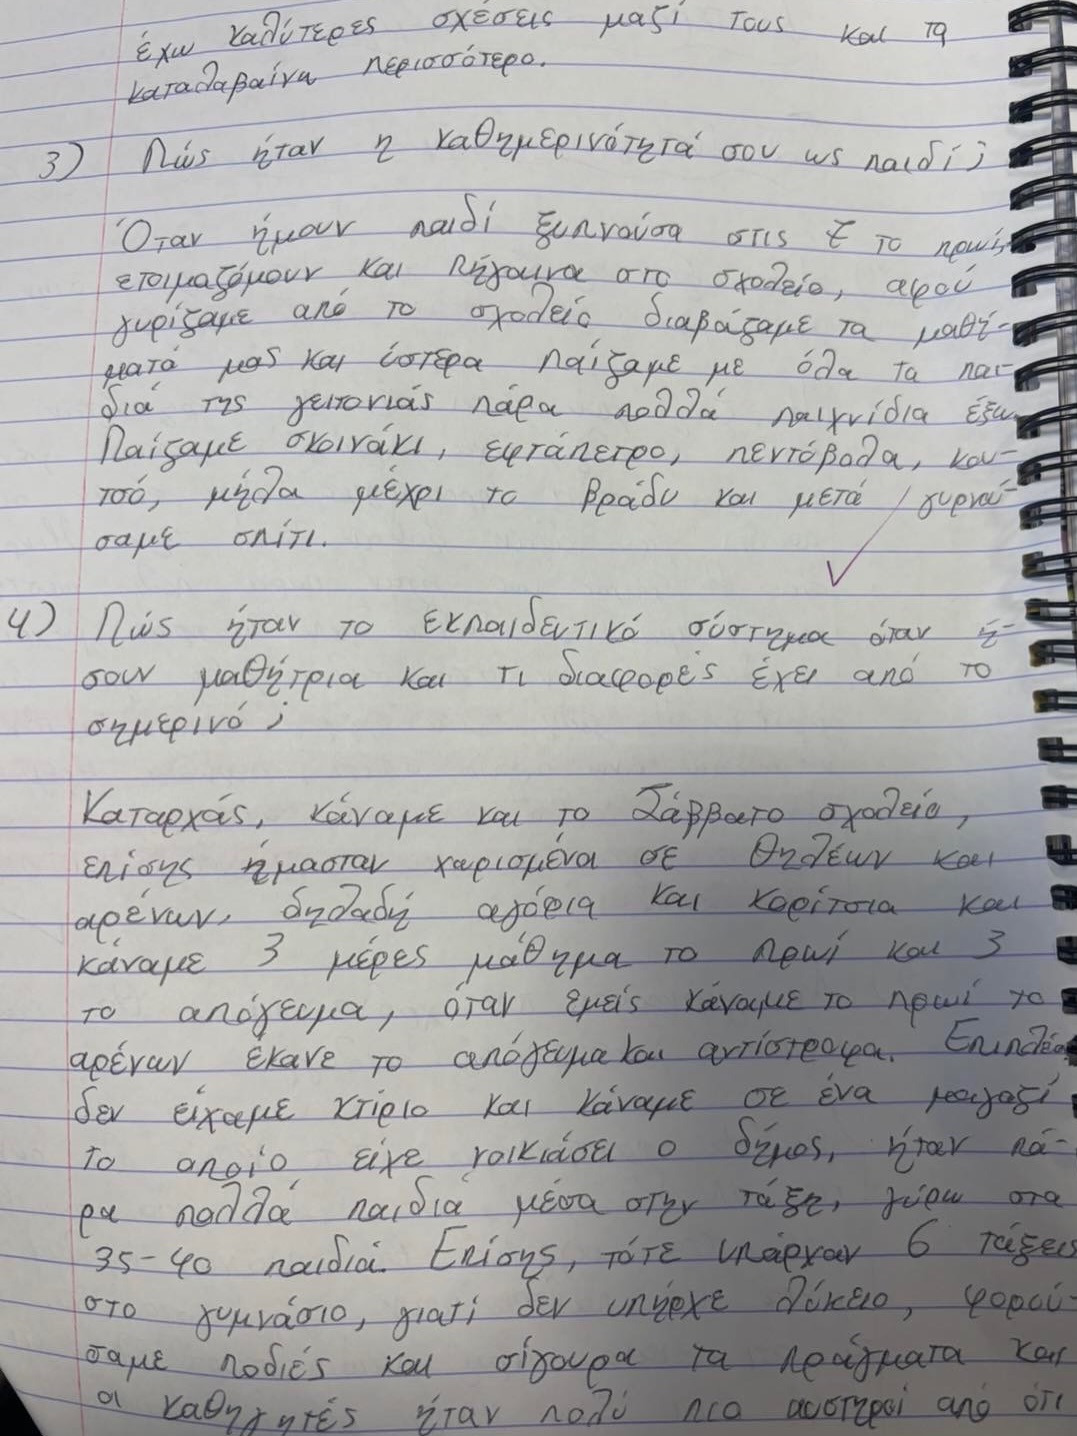 έχω καλύτερες σχέσεις μαζί τους και τα
καταλαβαίνω περισσότερο.
3) Πώς ήταν η καθημερινότητά σου ως παιδί;
Όταν ήμουν παιδί ξυπνούσα στις 7 το πρωί,
ετοιμαζόμουν και πήγαινα στο σχολείο, αφού
γυρίζαμε από το σχολείο διαβάζαμε τα μαθή-
ματά μας και ύστερα παίζαμε με όλα τα παι-
διά της γειτονιάς πάρα πολλά παιχνίδια έξω.
Παίζαμε σκοινάκι, εφτάπετρο, πεντόβολα, κου-
τσό, μήλα μέχρι το βράδυ και μετά γυρνού-
σαμε σπίτι.
4) Πώς ήταν το εκπαιδευτικό σύστημα όταν ή-
σουν μαθήτρια και τι διαφορές έχει από το
σημερινό;
Καταρχάς, κάναμε και το Σάββατο σχολείο,
επίσης ήμασταν χωρισμένα σε θηλέων και
αρένων, δηλαδή αγόρια και κορίτσια και
κάναμε 3 μέρες μάθημα το πρωί και 3
το απόγευμα, όταν εμείς κάναμε το πρωί το
αρένων έκανε το απόγευμα και αντίστροφα. Επιπλέον
δεν είχαμε κτίριο και κάναμε σε ένα μαγαζί
το οποίο είχε νοικιάσει ο δήμος, ήταν πά-
ρα πολλά παιδιά μέσα στην τάξη, γύρω στα
35-40 παιδιά. Επίσης, τότε υπάρχαν 6 τάξεις
στο γυμνάσιο, γιατί δεν υπήρχε λύκειο, φορού-
σαμε ποδιές και σίγουρα τα πράγματα και
οι καθηγητές ήταν πολύ πιο αυστηροί από ότι